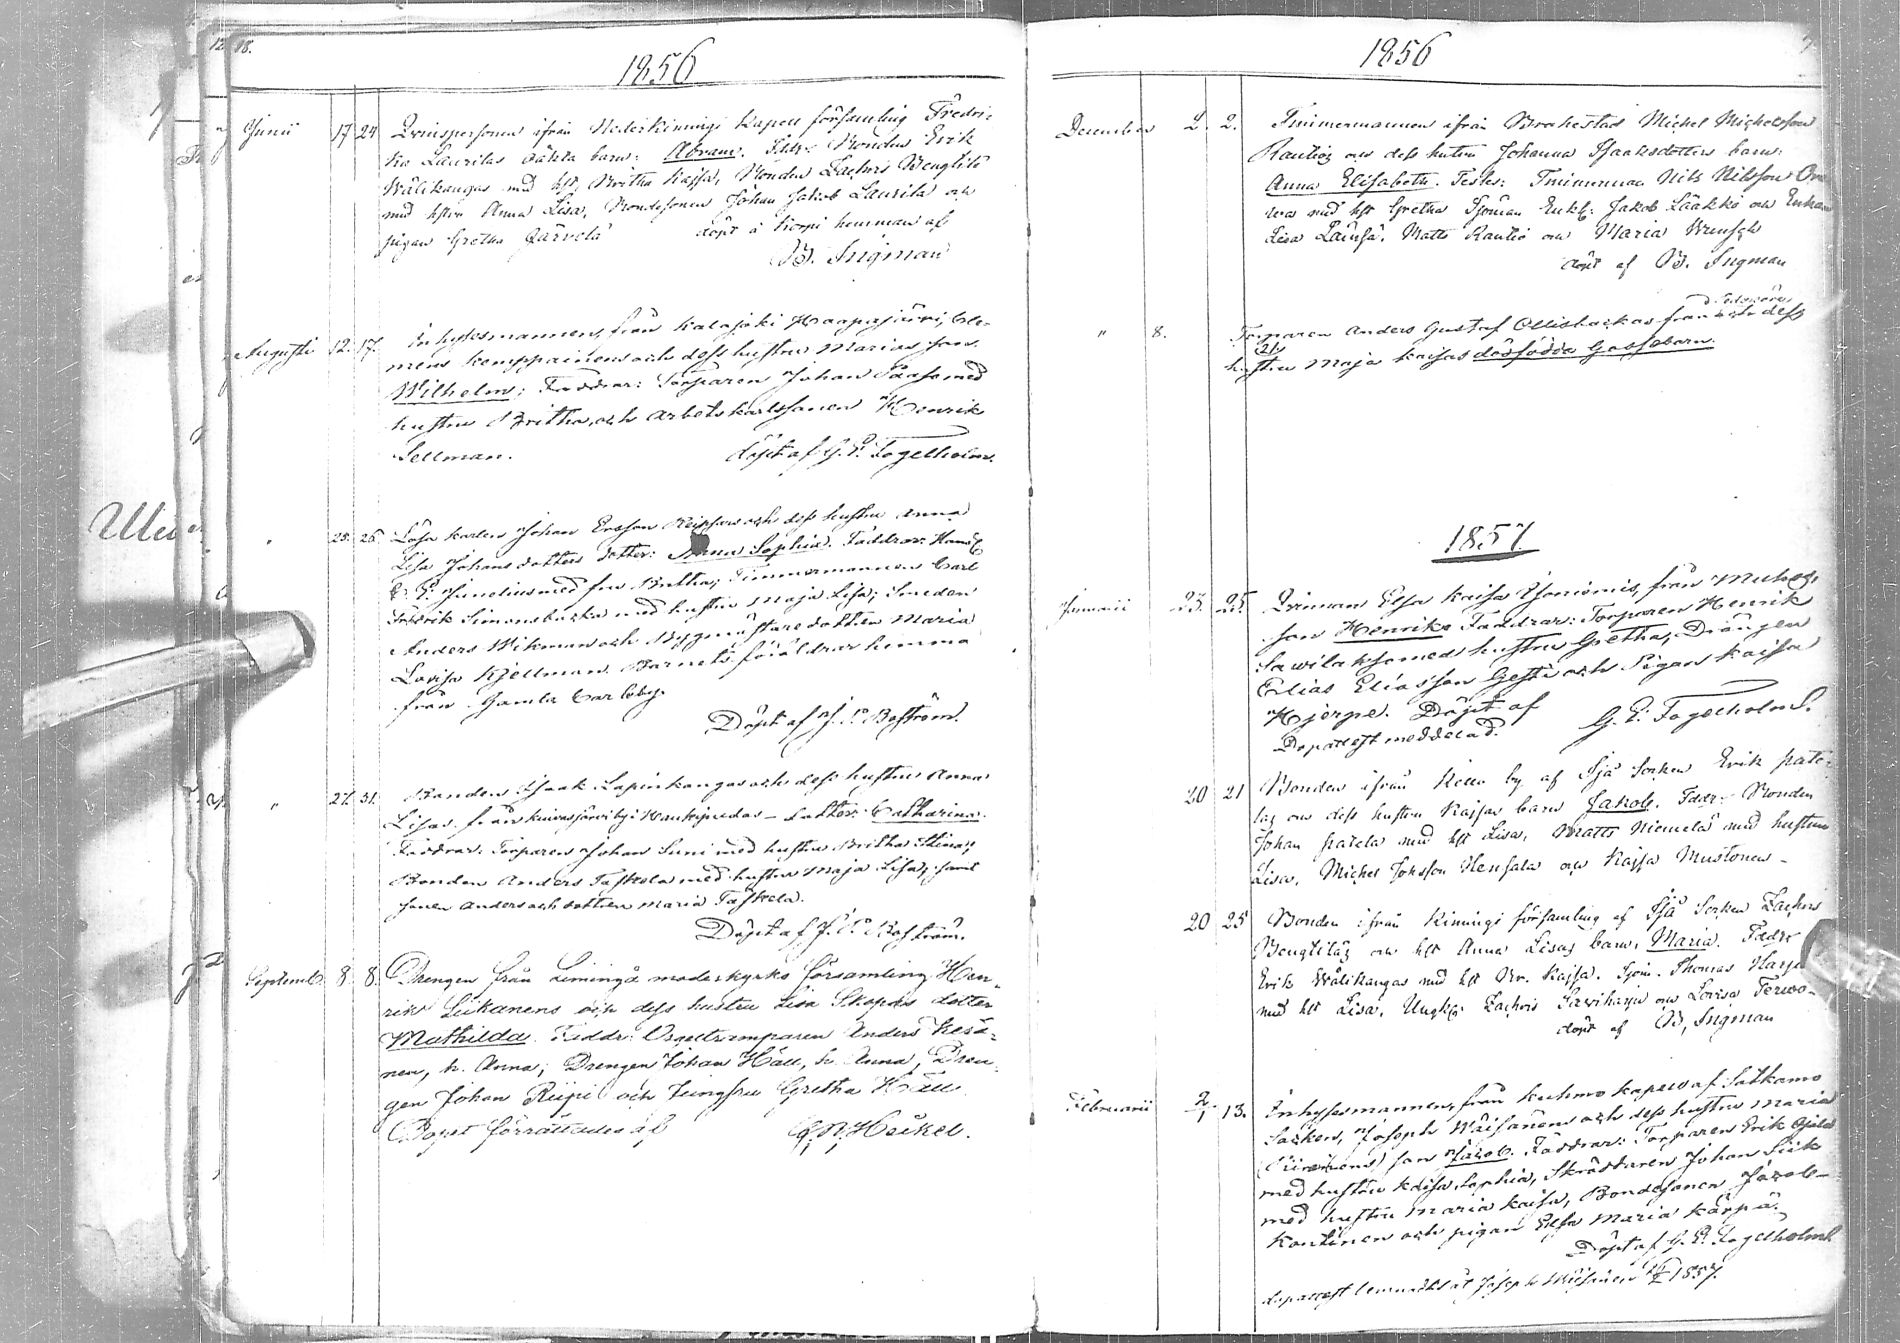 12. 18.
1856
Junii 17 24 Qvinspersonen ifrån Nederkiimingi Kapell församling Fredri-
ka Laurilas oäkta barn: Abram. Faddr: Bonden Erik
Wälikangas med hst. Britha Kajsa, Bonden Zachris Bengtilä
med hstru Anna Lisa, Bondesonen Johan Jakob Laurila och
pigan Gretha Järvelä döpt å Korpi hemman af
B. Ingman
Augusti 12. 17. Inhysesmannens, från Kalajoki Haapajärvi, Cle-
mens Kemppainens och dess hustru Marias son:
Wilhelm; Faddrar: Torparen Johan Saaso med
hustru Britha, och arbetskarlssonen Henrik
Sellman. döpt af G. E. Fogelholm.
" 25. 26. Lösa karlen Johan Ersson och dess hustru Anna
Lisa Johansdotters dotter: Anna Sophia. Faddrar: Handl.
C. G. Junelius med fru Britha; Timmermannen Carl
Fredrik Simonsbacka med hustru Maja Lisa; Smeden
Anders Wikman och Byggmästare dottren Maria
Lovisa Kjellman. Barnets föräldrar hemma
från Gamla Carleby.
Döpt af J. P. Boström.
" 27. 31. Bonden Isaak Lapinkangas och dess hustru Anna
Lisas från Kuivasjärvi by i Haukipudas - dotter: Catharina.
Faddrar: Torparen Johan Suni med hustru Britha Stina;
Bonden Anders Taskela med hustru Maja Lisa; samt
sonen Anders och dottren Maria Taskela.
Döpt af J. P. Boström.
Septemb. 8. 8. Drengen från Limingå moderkyrko församling Hen-
rik Liikanens och dess hustru Lisa Skopas dotter
Mathilda. Faddr: Orgeltramparen Anders Kesä-
nen, h. Anna; Drengen Johan Häll, h. Anna, Dren-
gen Johan Riipi och Jungfru Gretha Häll
Dopet förrättades af Heikel.
1856
December 2. 2. Timmermannen ifrån Brahestad Michel Michelsson
Rautios och dess hustru Johanna Isaaksdotters barn:
Anna Elisabeth. Testes: Timmerman Nils Nilsson
med hst Gretha Sjöman Enkl: Jakob Lääkkö och Enkan
Lisa Matts Rautio och Maria Wrensch
döpt af B. Ingman
" 8. Torparen Anders Gustaf Ollisbackas från och dess
hustru Maja Kaisas dödfödda Gossebarn.
1857.
Januarii 23. 25. Qvinnan Elsa Kaisa från Muhos,
son Henrik. Faddrar: Torparen Henrik
Sawilakso med hustru Gretha, Drängen
Elias Eliasson och Pigan Kaisa
Hjerpe. Döpt af G. E. Fogelholm.
Dopattest meddelad.
20 21 Bonden ifrån Kello by af Ijå Socken Erik Pate-
las och dess hustru Kajsas barn Jakob. Faddr: Bonden
Johan Patela med hst Lisa, Matts Niemelä med hustru
Lisa, Michel Johsson Hensala och Kajsa Mustonen -
20 25 Bonden ifrån Kiimingi församling af Ijå Socken Zachris
Bengtiläs och hst Anna Lisas barn: Maria. Faddr
Erik Wälikangas med hst Br. Kajsa. Sjöm. Thomas
med hst Lisa, Ungk: Zachris Sarvikangas och Lovisa Terwo-
döpt af B. Ingman
Februarii 2/1. 13. Inhysesmannens, från Kuhmo kapell af Sotkamo
Socken, Joseph Wäisänens och dess hustru Maria
son Jacob. Faddrar: Torparen Erik
med hustru Kaisa Sophia, Skräddaren Johan Siik
med hustru Maria Kaisa, Bondesonen Jacob
Kontinen och pigan Elsa Maria Kärpä.
Döpt af G. E. Fogelholm
dopattest lemnades åt Joseph Wäisänen 1857.